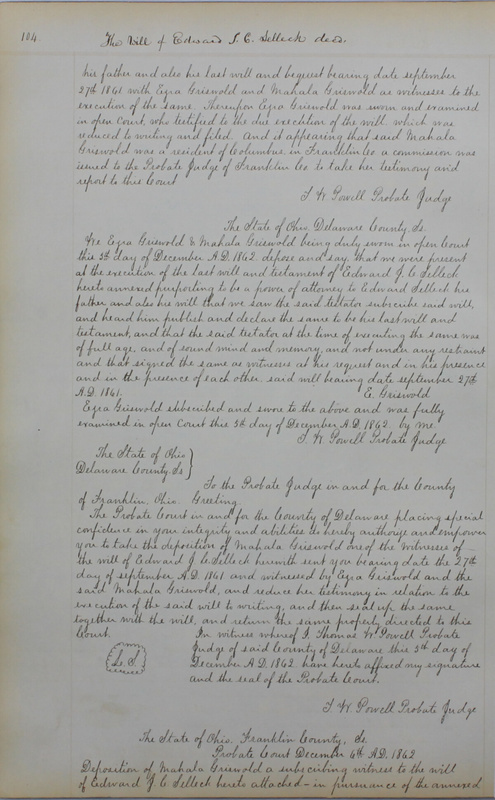 104
The Will of Edward J. C. Selleck decd.
his father and also his last will and bequest bearing date september
27th 1861 with Ezra Griswold and Mahala Griswold as witnesses to the
execution of the same. Thereupon Ezra Griswold was sworn and examined
in open Court, who testified to the due execution of the will which was
reduced to writing and filed. And it appearing that said Mahala
Griswold was a resident of Columbus in Franklin Co a commission was
issued to the Probate Judge of Franklin Co. to take her testimony and
report to this Court
T W Powell Probate Judge
The State of Ohio. Delaware County. Ss.
We Ezra Griswold & Mahala Griswold being duly sworn in open Court
this 5th day of December A.D. 1862. depose and say, that we were present
at the execution of the last will and testament of Edward J. C Selleck
hereto annexed purporting to be a power of attorney to Edward Selleck his
father and also his will that we saw the said testator subscribe said will,
and heard him publish and declare the same to be his last will and
testament, and that the said testator at the time of executing the same was
of full age, and of sound mind and memory, and not under any restraint
and that signed the same as witnesses at his request and in his presence
and in the presence of each other. said will bearing date september 27th
A.D. 1861. E. Griswold
Ezra Griswold subscribed and swore to the above and was fully
examined in open Court this 5th day of December A.D. 1862 by me.
T. W. Powell Probate Judge
The State of Ohio
Delaware County. Ss }
To the Probate Judge in and for the County
of Franklin. Ohio. Greeting
The Probate Court in and for the County of Delaware placing special
confidence in your integrity and abilities do hereby authorize and empower
you to take the deposition of Mahala Griswold one of the witnesses of
the will of Edward J. C. Selleck herewith sent you bearing date the 27th
day of september A.D. 1861 and witnessed by Ezra Griswold and the
said Mahala Griswold, and reduce her testimony in relation to the
execution of the said will to writing, and then seal up the same
together with the will, and return the same properly directed to this
Court. In witness whereof I Thomas W. Powell Probate
Judge of said County of Delaware this 5th day of
L.S. December A.D. 1862. have hereto affixed my signature
and the seal of the Probate Court.
T. W. Powell Probate Judge
The State of Ohio. Franklin County, Ss.
Probate Court December 6th A.D. 1862
Deposition of Mahala Griswold a subscribing witness to the will
of Edward J. C Selleck hereto attached – in pursuance of the annexed